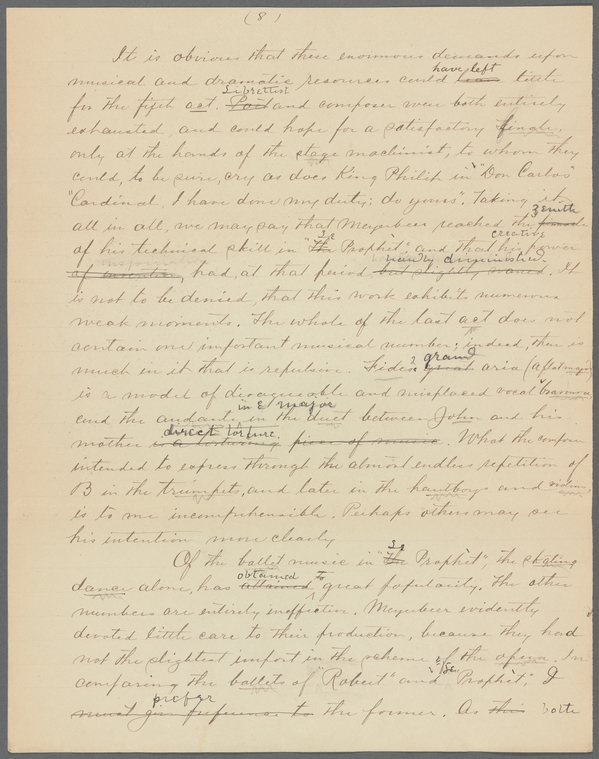 (8)
It is obvious that these enormous demands upon
musical and dramatic resources could have left little
for the fifth act. Librettist and composer were both entirely
exhausted, and could hope for a satisfactory finale,
only at the hands of the stage machinist, to whom they
could, to be sure, cry as does King Philip in "Don Carlos"
"Cardinal, I have done my duty; do yours". Taking it
all in all, we may say that Meyerbeer reached the zenith
of his technical skill in "Le Prophèt"; and that his creative power
of execution, had, at that period hardly diminished. It
is not to be denied, that this work exhibits numerous
weak moments. The whole of the last act does not
contain one important musical number; indeed, there is
much in it that is repulsive. Fides' grand aria (A flat major)
is a model of disagreeable and misplaced vocal bravura,
and the andante in E major in the duet between John and his
mother direct torture. piece of music. What the composer
intended to express through the almost endless repetition of
B in the trumpets, and later in the hautboys and violins
is to me incomprehensible. Perhaps others may see
his intention more clearly
Of the ballet music in "Le Prophèt", the skating
dance alone, has obtained to great popularity. The other
numbers are entirely ineffective. Meyerbeer evidently
devoted little care to their production, because they had
not the slightest import in the scheme of the opera. In
comparing the ballets of "Robert" and "Le Prophèt", I
prefer
must give preference to the former. As this both